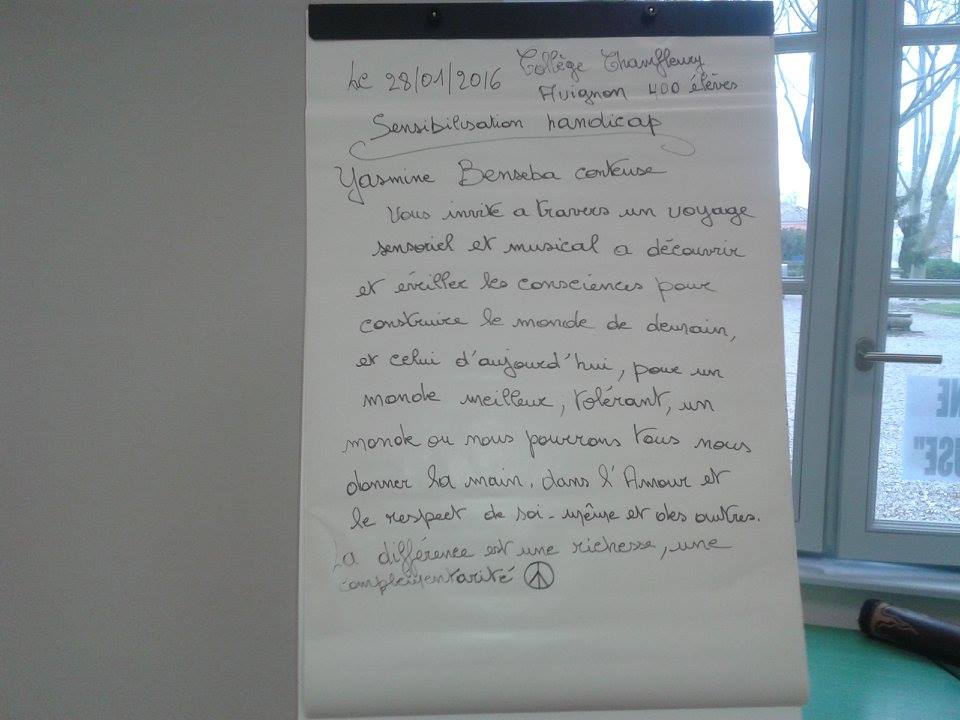 Le 28/01/2016 Collège Chamfleury
Avignon 400 élèves
Sensibilisation handicap
Yasmine Benseba conteuse
Vous invite a travers un voyage
sensoriel et musical a découvrir
et éveiller les consciences pour
construire le monde de demain,
et celui d'aujourd'hui, pour un
monde meilleur, tolérant, un
monde ou nous pourrons tous nous
donner la main, dans l'Amour et
le respect de soi-même et des autres.
La différence est une richesse, une
complémentarité
NE
USE"